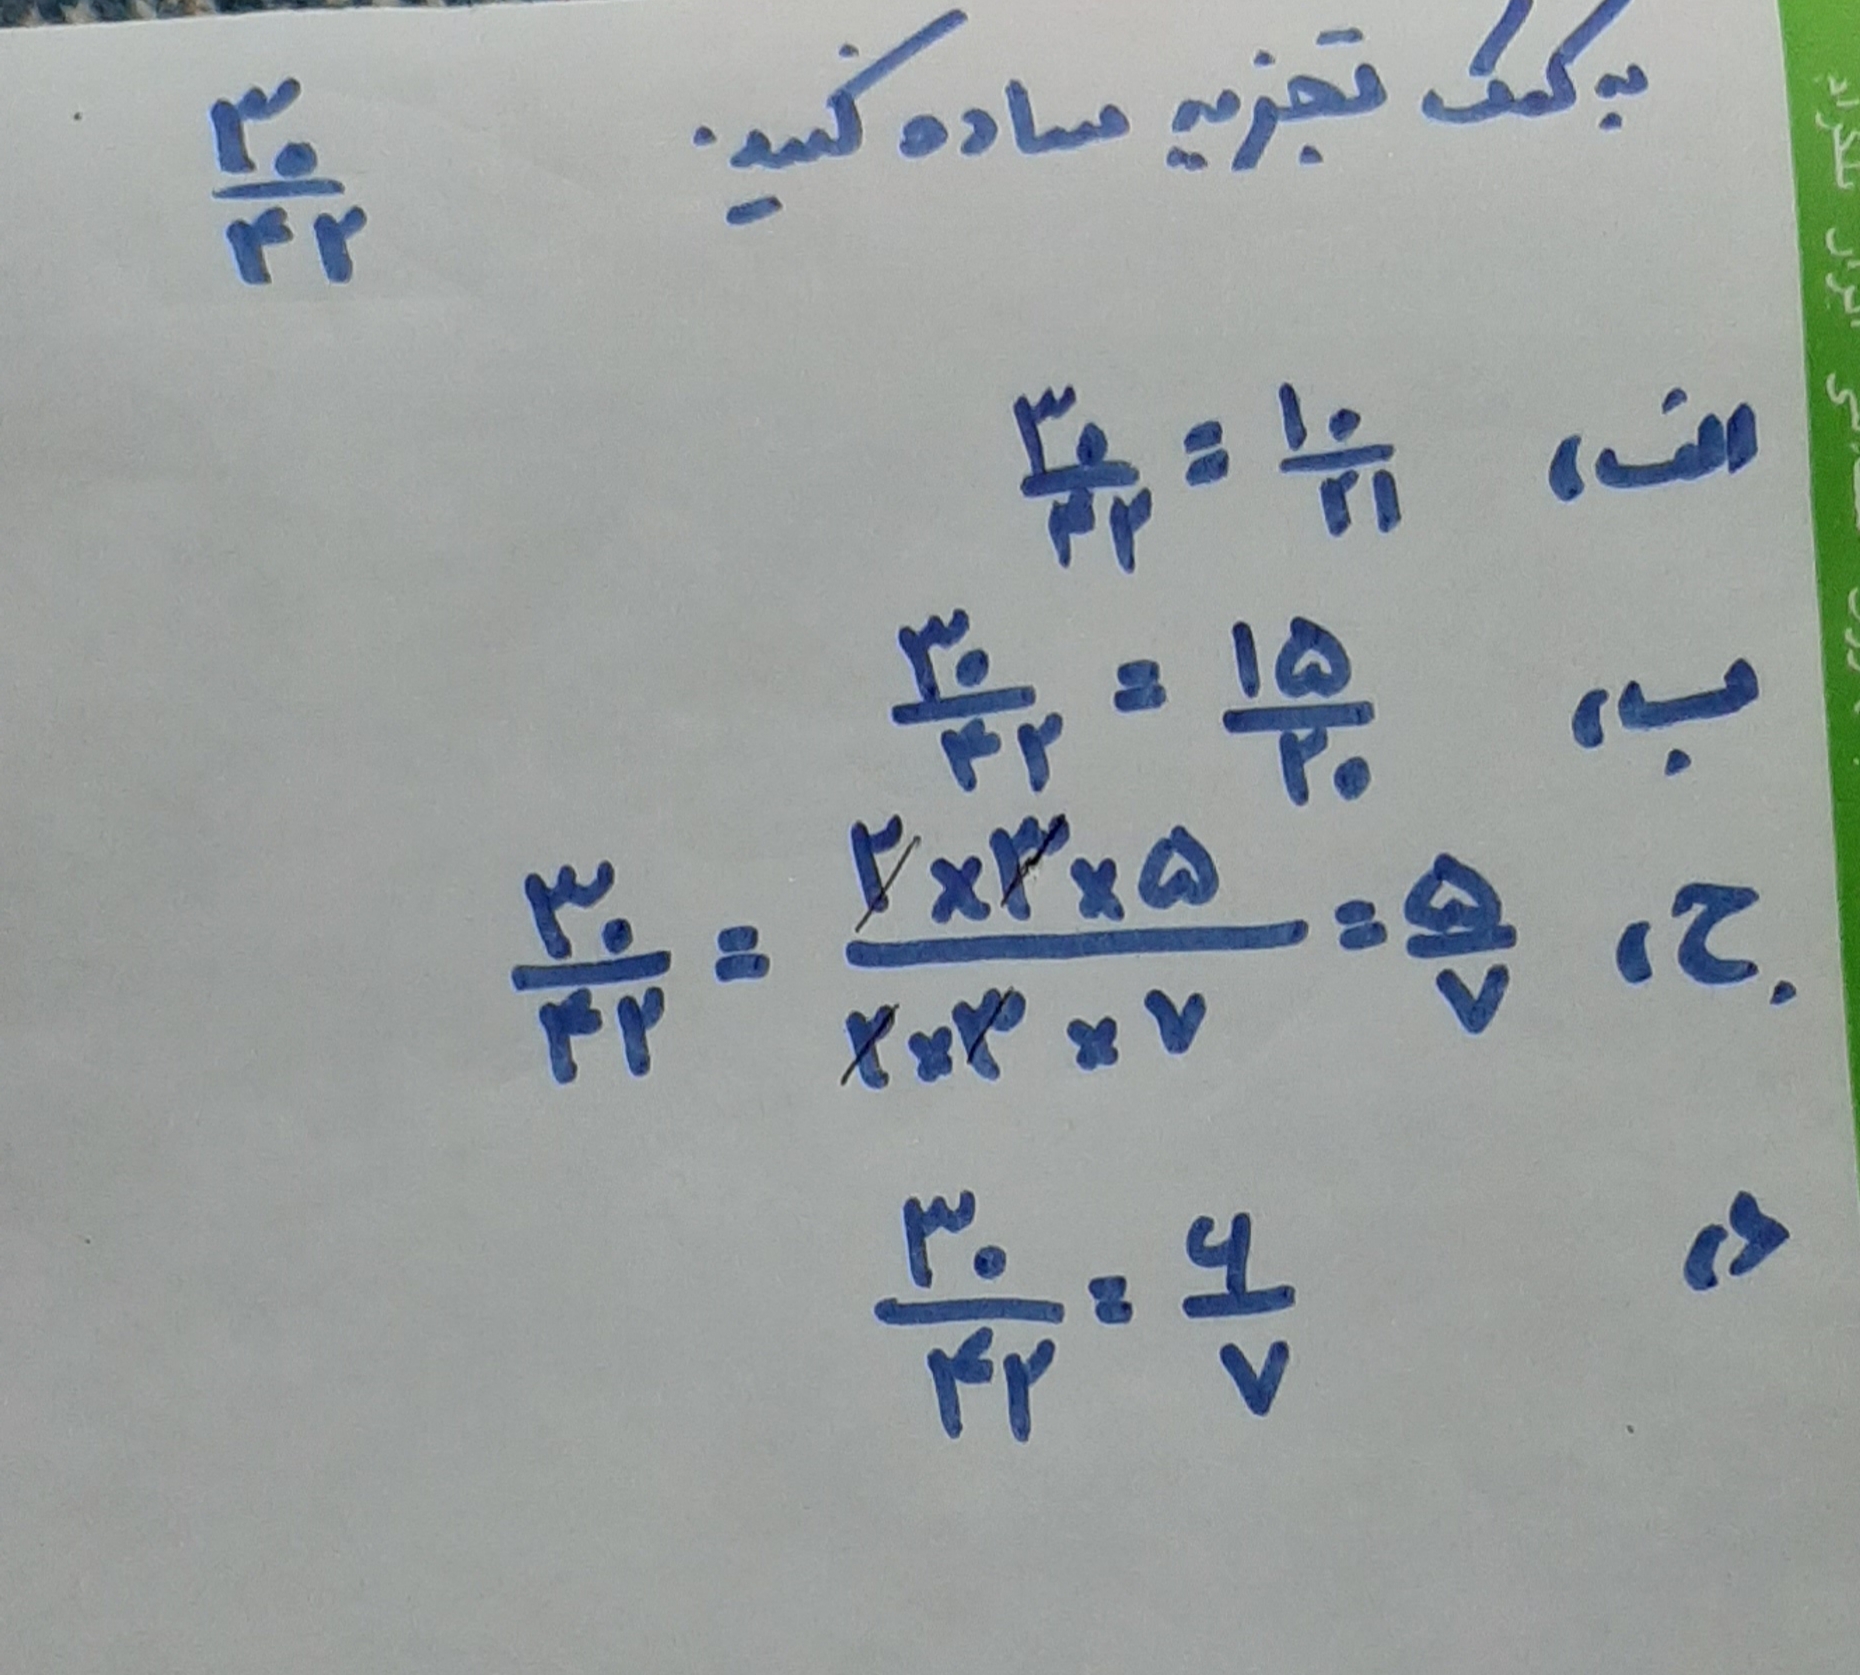 به کمک تجزیه ساده کنید. ۳۰/۴۲
الف، ۳۰/۴۲ = ۱۰/۲۱
ب، ۳۰/۴۲ = ۱۵/۲۰
ج، ۳۰/۴۲ = ۲×۳×۵/۲×۳×۷ = ۵/۷
د، ۳۰/۴۲ = ۶/۷